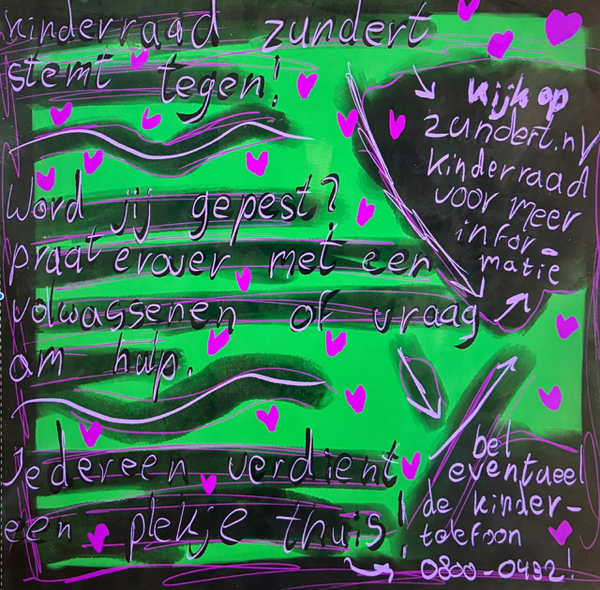 kinderraad zundert
stemt tegen!
Word jij gepest?
praat erover met een
volwassenen of vraag
om hulp.
Iedereen verdient
een plekje thuis!
kijk op
zundert.nl/
kinderraad
voor meer
infor-
matie
bel
eventueel
de kinder-
telefoon
0800-0432!